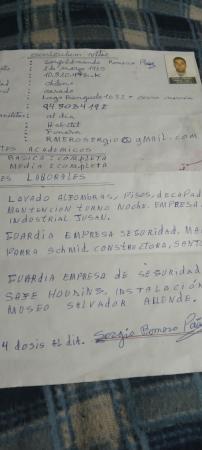 curriculum vitae
: Romero Páez
de marzo 1970
: chileno
: casado
: Lago Ranguido 1032 -
: al día
: Habitat
: Fonasa
: RMEROSERGIO@gmail.com
ES ACADEMICOS
BASICA : COMPLETA
MEDIA : COMPLETA
ES LABORALES
LAVADO ALFOMBRAS, PISOS, DECAPAD
MANTENCION TURNO NOCHE. EMPRESA
INDUSTRIAL JUSAN.
GUARDIA EMPRESA SEGURIDAD. MA
PARRA SCHMID. CONSTRUCTORA, SANT
GUARDIA EMPRESA DE SEGURIDAD
SAFE HOUSING. INSTALACIÓN
MUSEO SALVADOR ALLENDE.
4 dosis al día. Sergio Romero Páe